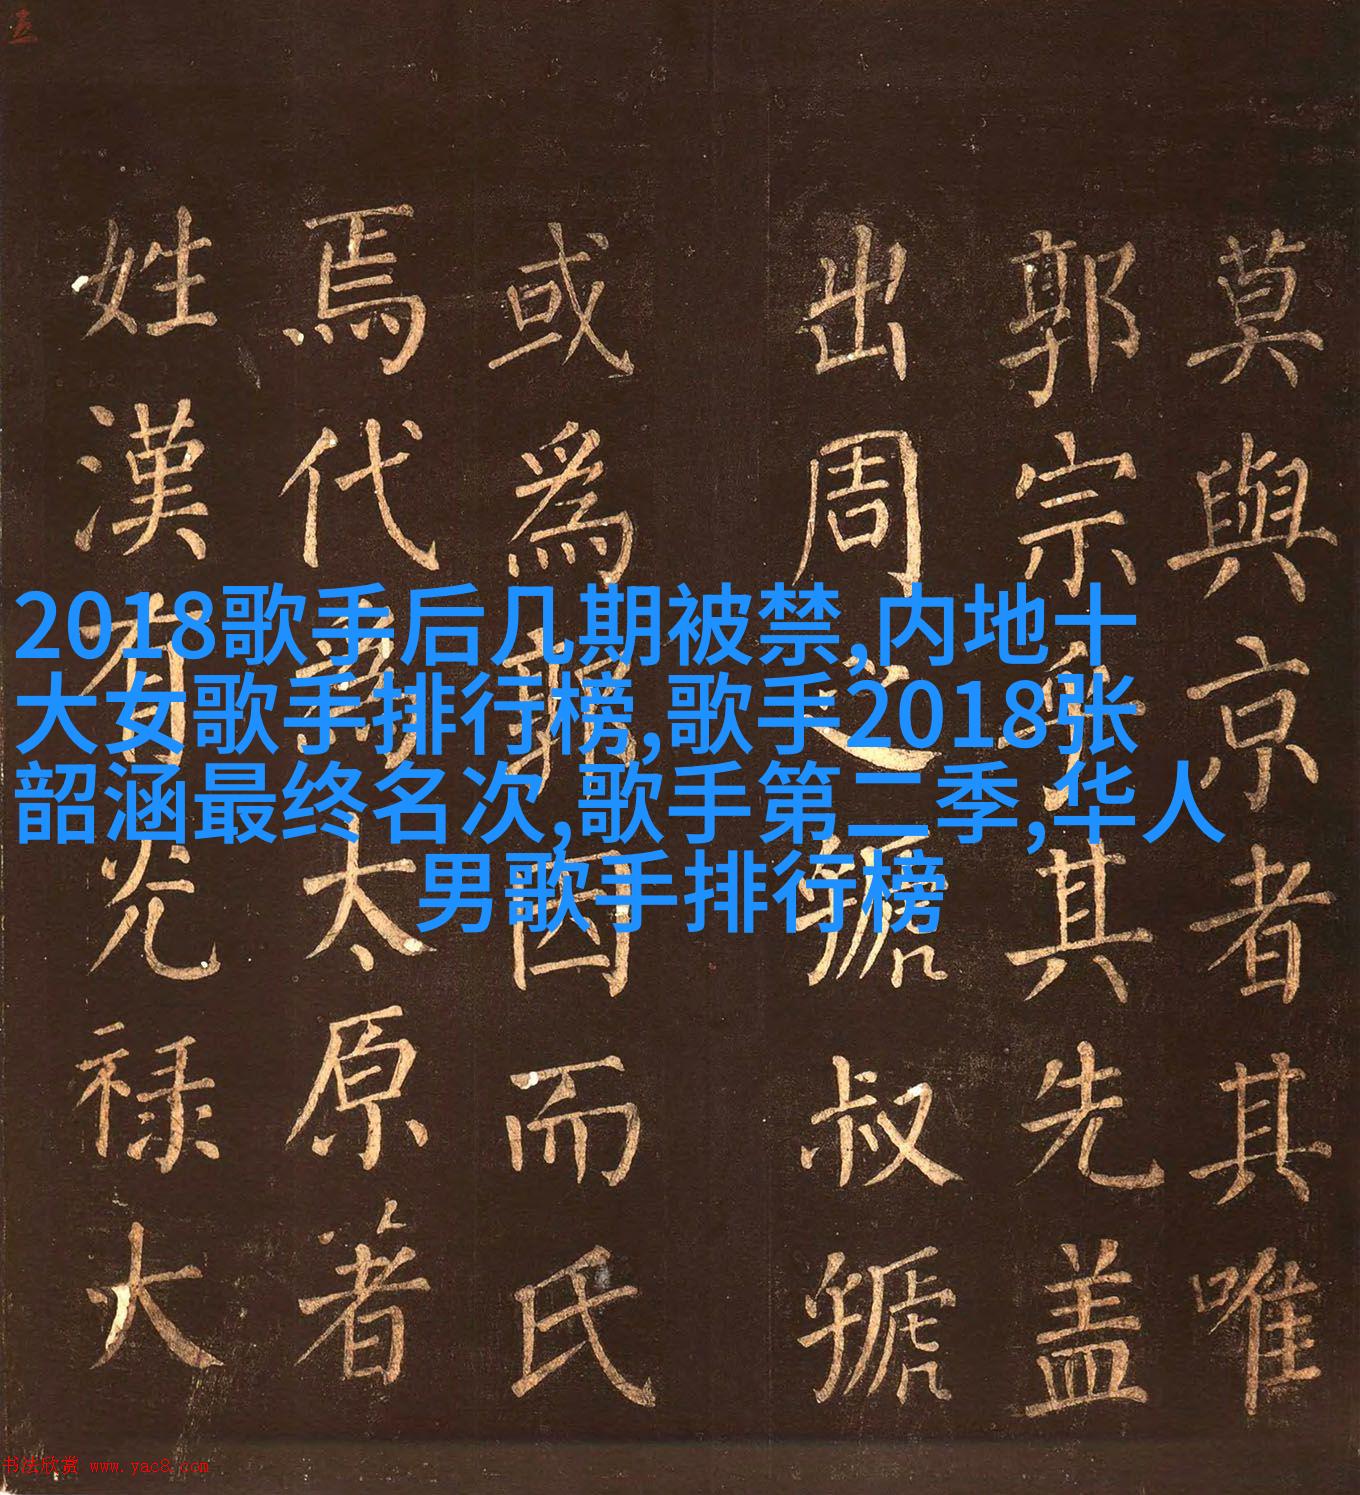 莫與京者其唯
郭宗乎其先盖
出周之虢叔虢
或爲郭因而氏
焉代爲太原著
姓漢有光禄大
2018歌手后几期被禁,内地十
大女歌手排行榜,歌手2018张
韶涵最终名次,歌手第二季,华人
男歌手排行榜
书法欣赏 www.yac8.com